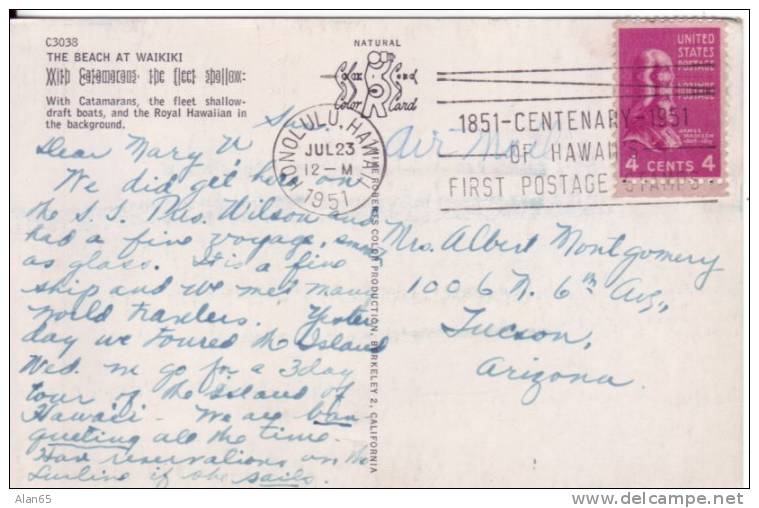 C3038
THE BEACH AT WAIKIKI
With Catamarans, the fleet shallow-
With Catamarans, the fleet shallow-
draft boats, and the Royal Hawaiian in
the background.
NATURAL
Color Card
HONOLULU, HAWAII
JUL 23
12-M
1951
1851-CENTENARY-1951
OF HAWAII'S
FIRST POSTAGE STAMPS
UNITED
STATES
POSTAGE
JAMES MADISON
4 CENTS 4
Air Mail
Sun.
Dear Mary V
We did get here on
the S.S. Pres. Wilson and
had a fine voyage, smooth
as glass. It is a fine
ship and we met many
world travelers. Yester
day we toured the Island
Wed. we go for a 3 day
tour of the island of
Hawaii - We are ban
queting all the time.
Have reservations on the
Lurline if she sails.
Mrs. Albert Montgomery
1006 N. 6th Ave.,
Tucson,
Arizona.
MIKE ROBERTS COLOR PRODUCTION, BERKELEY 2, CALIFORNIA
Alan65
www.delcampe.net